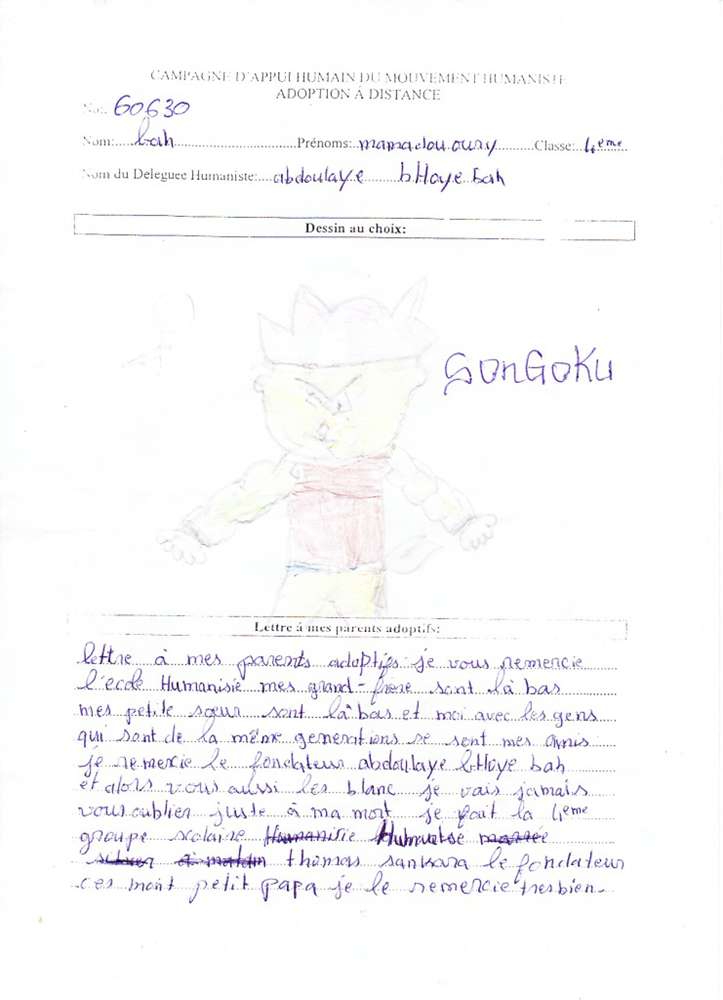 CAMPAGNE D'APPUI HUMAIN DU MOUVEMENT HUMANISTE
ADOPTION À DISTANCE
No: 60630
Nom: bah Prénoms: mamadou oury Classe: 4eme
Nom du Deleguee Humaniste: abdoulaye bHoye bah
Dessin au choix:
SonGoKu
Lettre à mes parents adoptifs:
lettre à mes parents adoptifs je vous remercie
l'ecole Humanisie mes grand-frère sont là bas
mes petite sœur sont là bas et moi avec les gens
qui sont de la même generations se sont mes amis
je remercie le fondateur abdoulaye bHoye bah
et alors vous aussi les blanc je vais jamais
vous oublier juste à ma mort je fait la 4eme
groupe scolaire Humanisie
thomas sankara le fondateur
ces mont petit papa je le remercie tres bien-